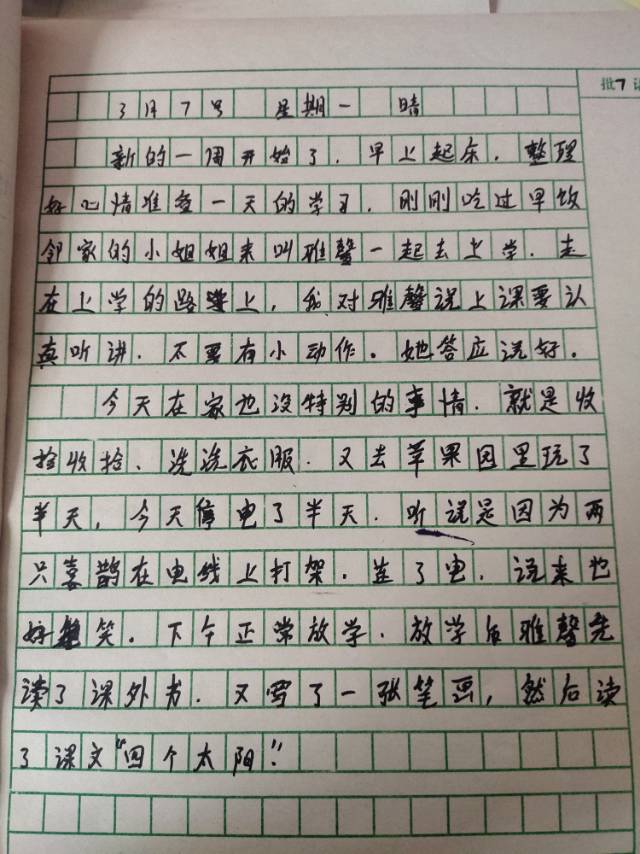 批7
3月7号 星期一 晴
新的一周开始了.早上起来.整理
好心情准备一天的学习.刚刚吃过早饭
邻家的小姐姐来叫雅馨一起去上学.走
在上学的路上,我对雅馨说上课要认
真听讲.不要有小动作。她答应说好。
今天在家也没特别的事情.就是收
拾收拾、洗洗衣服.又去苹果园里玩了
半天,今天停电了半天.听说是因为两
只喜鹊在电线上打架.连了电.说来也
好笑。下午正常放学.放学后雅馨先
读了课外书.又写了一张笔画,然后读
了课文"四个太阳".